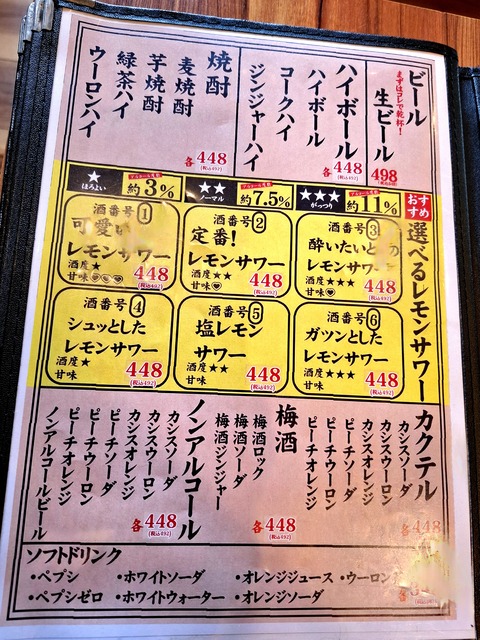 ビール
まずはコレで乾杯!
生ビール
498
ハイボール
ハイボール
コークハイ
ジンジャーハイ
各448
(税込492)
焼酎
麦焼酎
芋焼酎
緑茶ハイ
ウーロンハイ
各448
(税込492)
おすすめ
選べるレモンサワー
★
ほろよい
約3%
★★
ノーマル
約7.5%
★★★
がっつり
約11%
酒番号1
可愛い
レモンサワー
酒度★
甘味♥♥♥
448
(税込492)
酒番号2
定番!
レモンサワー
酒度★★
甘味♥
448
(税込492)
酒番号3
酔いたいとの
レモンサワー
酒度★★★
甘味♥
448
(税込492)
酒番号4
シュッとした
レモンサワー
酒度★
甘味
448
(税込492)
酒番号5
塩レモン
サワー
酒度★★
甘味
448
(税込492)
酒番号6
ガツンとした
レモンサワー
酒度★★★
甘味
448
(税込492)
カクテル
カシスソーダ
カシスウーロン
カシスオレンジ
ピーチソーダ
ピーチウーロン
ピーチオレンジ
各448
梅酒
梅酒ロック
梅酒ソーダ
梅酒ジンジャー
各448
(税込492)
ノンアルコール
カシスソーダ
カシスウーロン
カシスオレンジ
ピーチソーダ
ピーチウーロン
ピーチオレンジ
ノンアルコールビール
各448
(税込492)
ソフトドリンク
・ペプシ ・ホワイトソーダ ・オレンジジュース ・ウーロン
・ペプシゼロ ・ホワイトウォーター ・オレンジソーダ
各